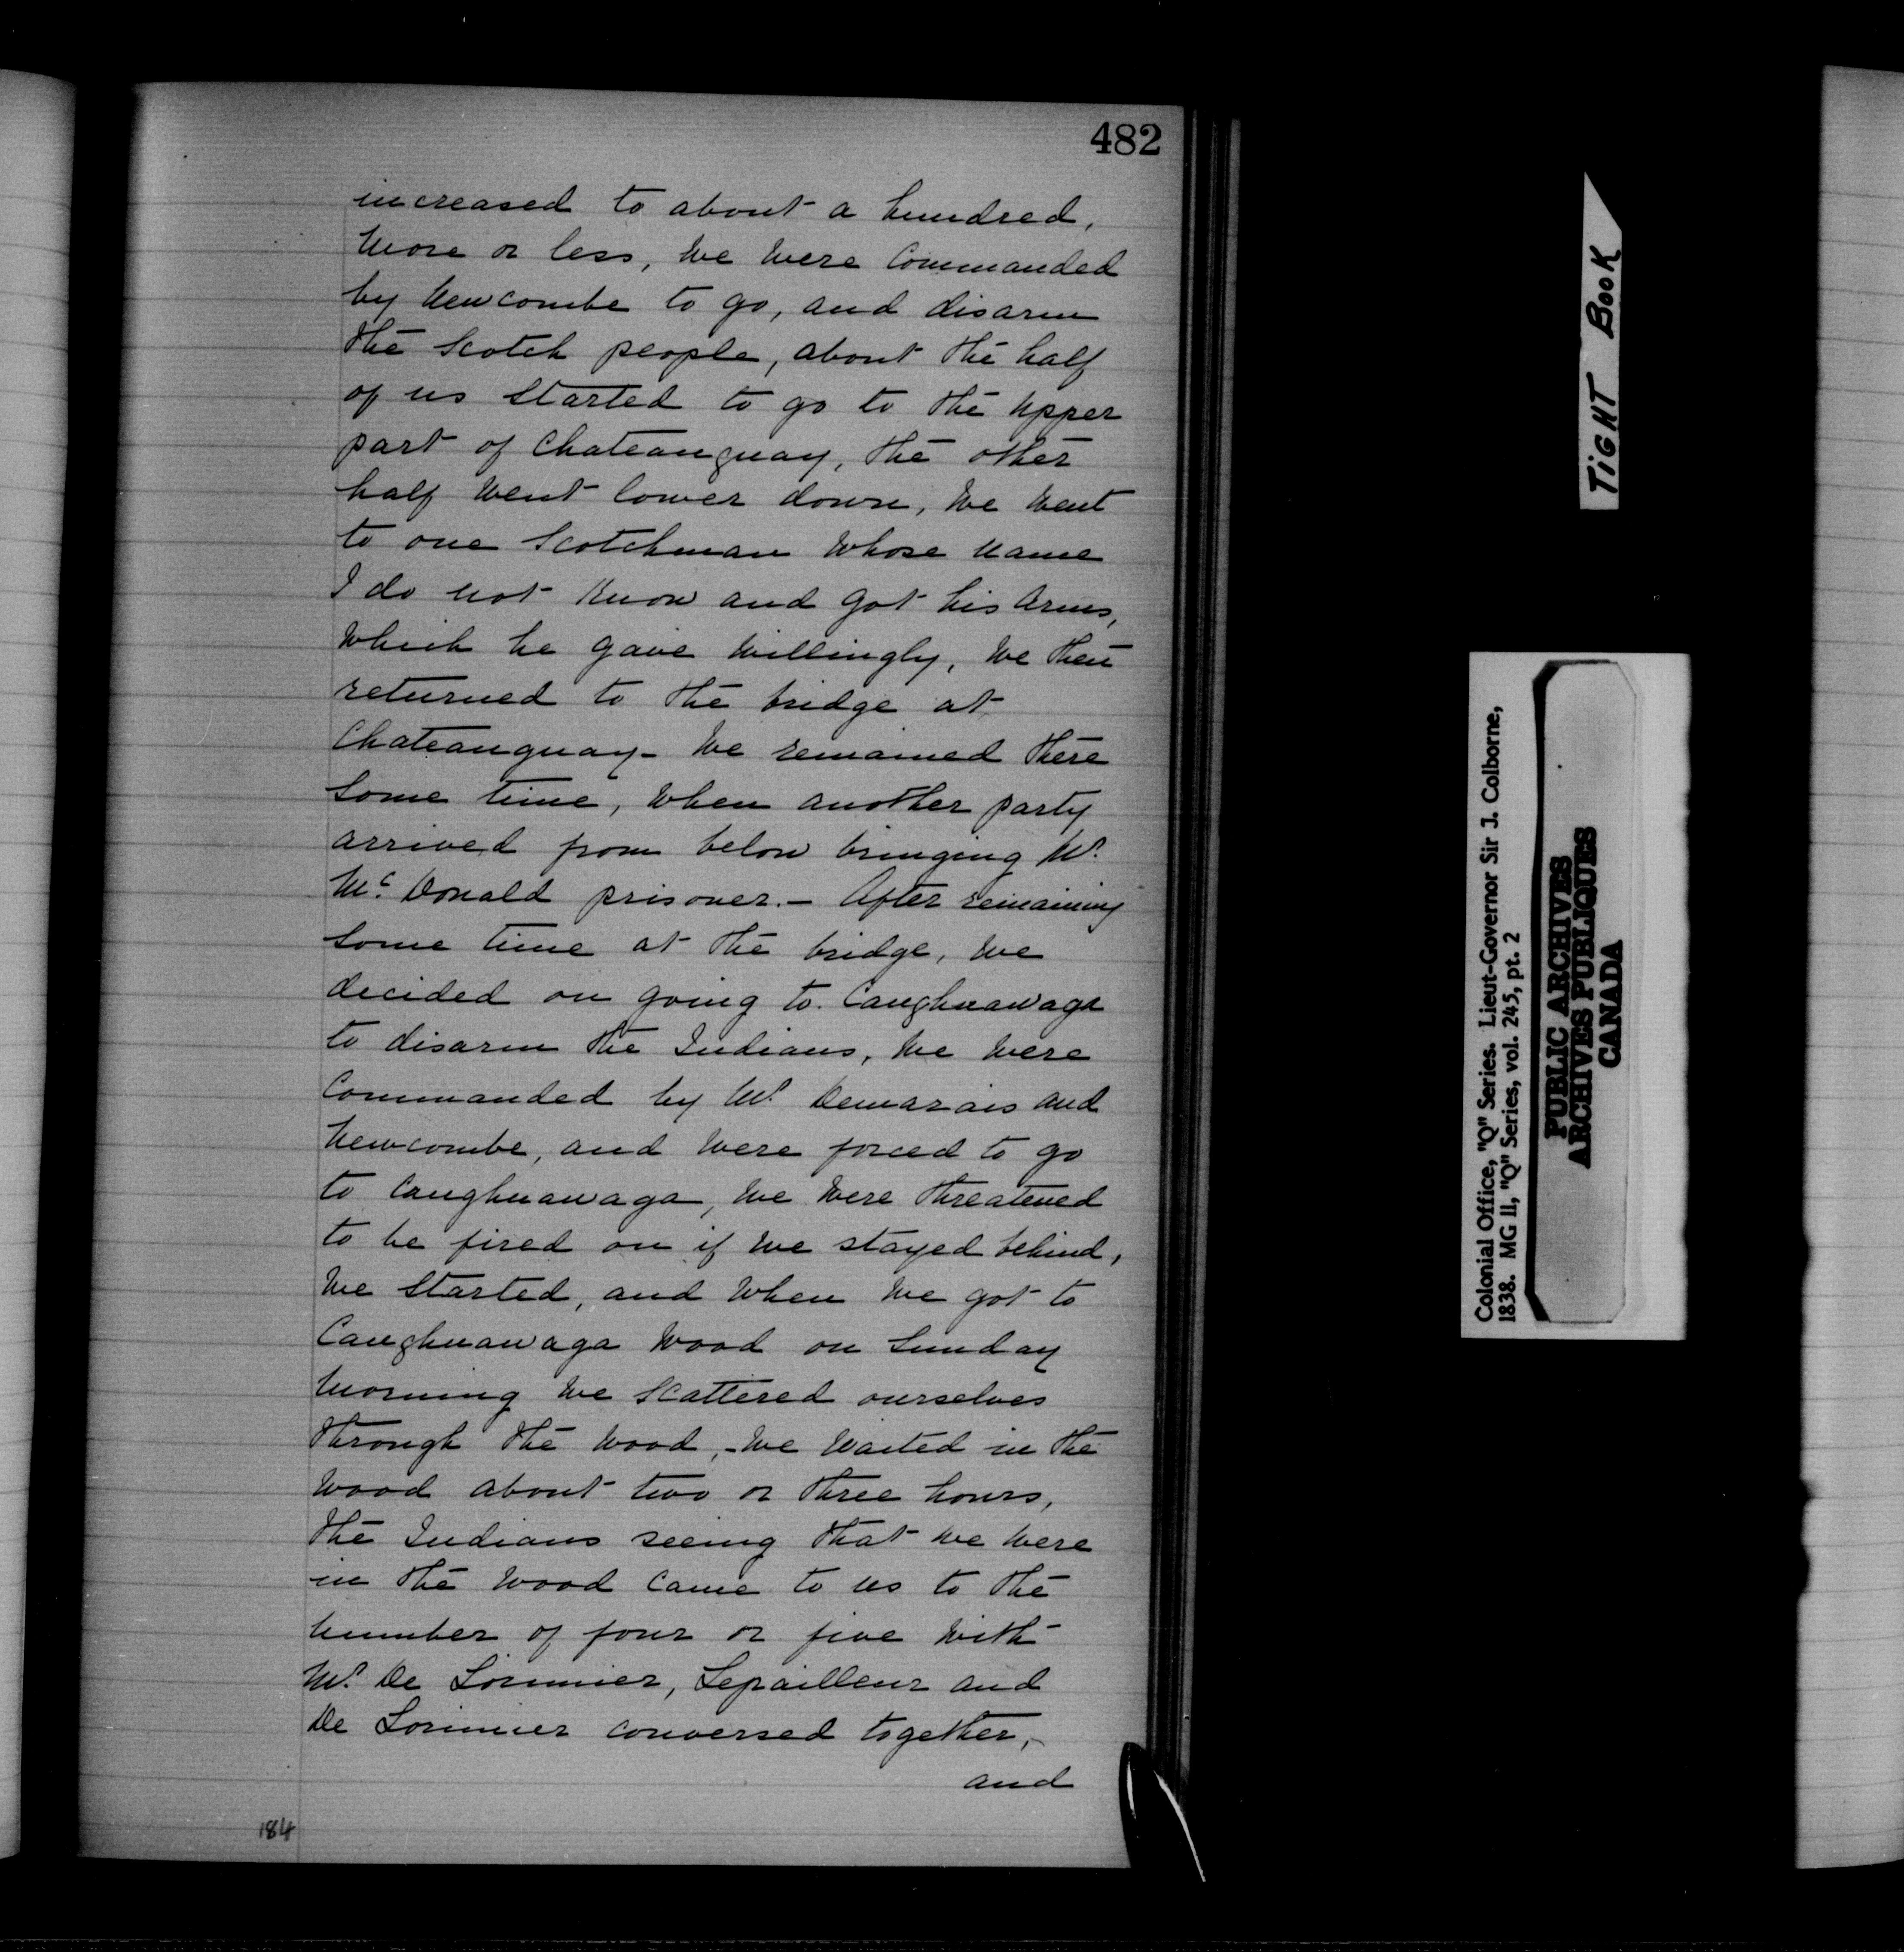 482
increased to about a hundred,
more or less, we were Commanded
by Newcombe to go, and disarm
the Scotch people, about the half
of us started to go to the upper
part of Chateauguay, the other
half went lower down, we went
to one Scotchman whose name
I do not know and got his arms,
which he gave willingly, we then
returned to the bridge at
Chateauguay - we remained there
some time, when another party
arrived from below bringing Mr.
Mc. Donald prisoner. - After remaining
some time at the bridge, we
decided on going to. Caughnawaga
to disarm the Indians, we were
Commanded by Mr. Demarais and
Newcombe, and were forced to go
to Caughnawaga, we were threatened
to be fired on if we stayed behind,
we started, and when we got to
Caughnawaga wood on Sunday
morning we scattered ourselves
through the wood, - we waited in the
wood about two or three hours,
the Indians seeing that we were
in the wood came to us to the
number of four or five with
Mr. De Lorimier, Lepailleur and
De Lorimier conversed together, -
and
184
TIGHT BOOK
Colonial Office, "Q" Series. Lieut-Governor Sir J. Colborne,
1838. MG 11, "Q" Series, vol. 245, pt. 2
PUBLIC ARCHIVES
ARCHIVES PUBLIQUES
CANADA